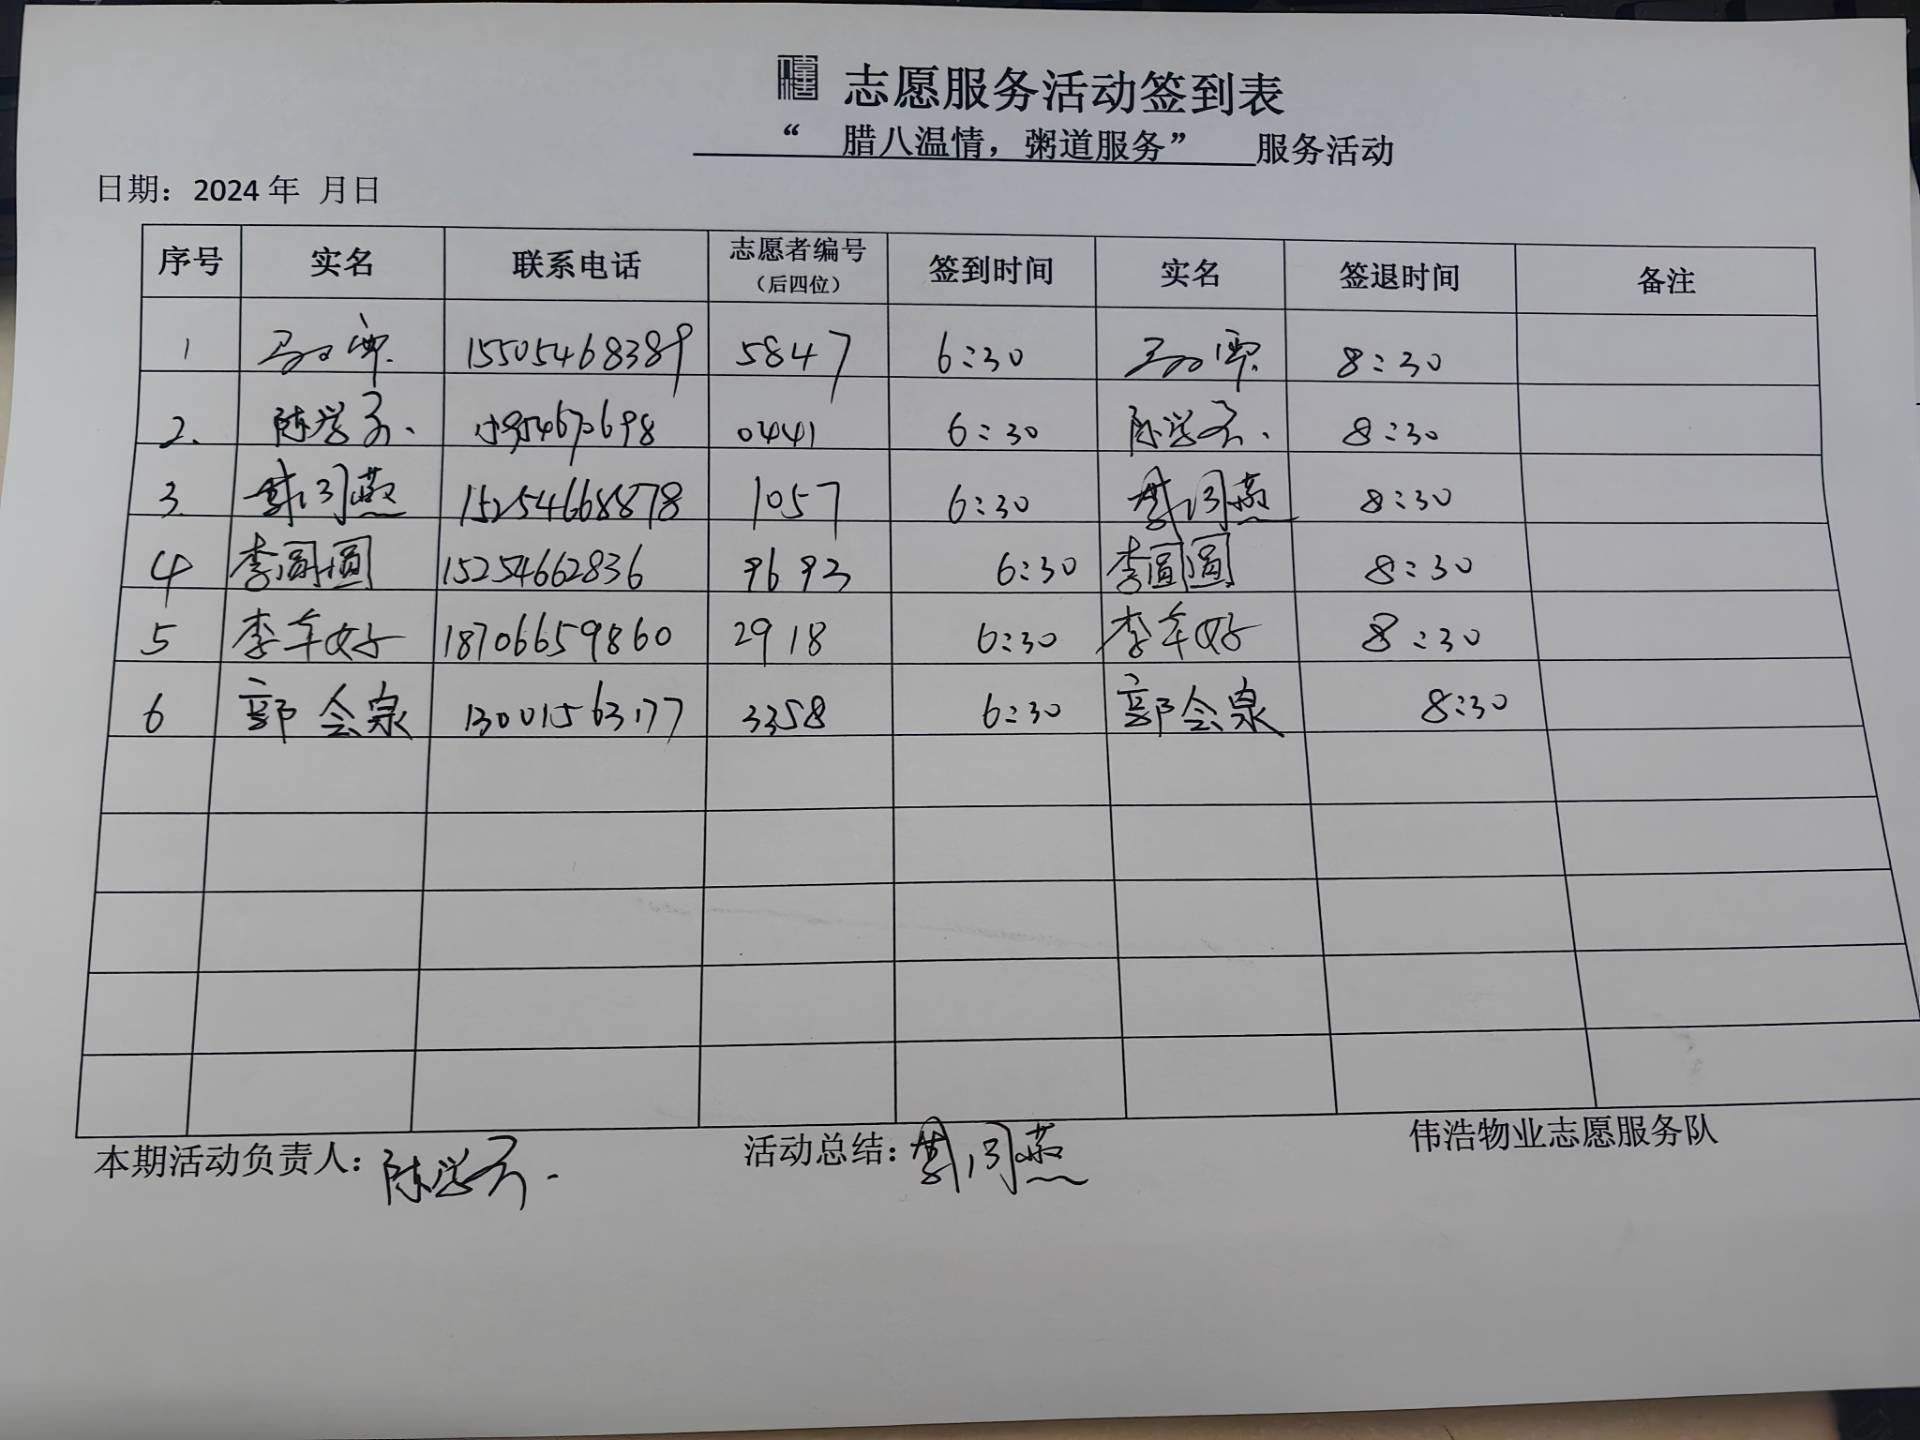 志愿服务活动签到表
“ 腊八温情，粥道服务” 服务活动
日期：2024 年 月日
序号 实名 联系电话 志愿者编号（后四位） 签到时间 实名 签退时间 备注
1 15505468389 5847 6:30 8:30
2. 陈学 0441 6:30 陈学 8:30
3. 燕 15254668878 1057 6:30 燕 8:30
4 李圆圆 15254662836 9693 6:30 李圆圆 8:30
5 李年好 18706659860 2918 6:30 李年好 8:30
6 郭会泉 13001563177 3358 6:30 郭会泉 8:30
本期活动负责人：陈学 活动总结：燕 伟浩物业志愿服务队